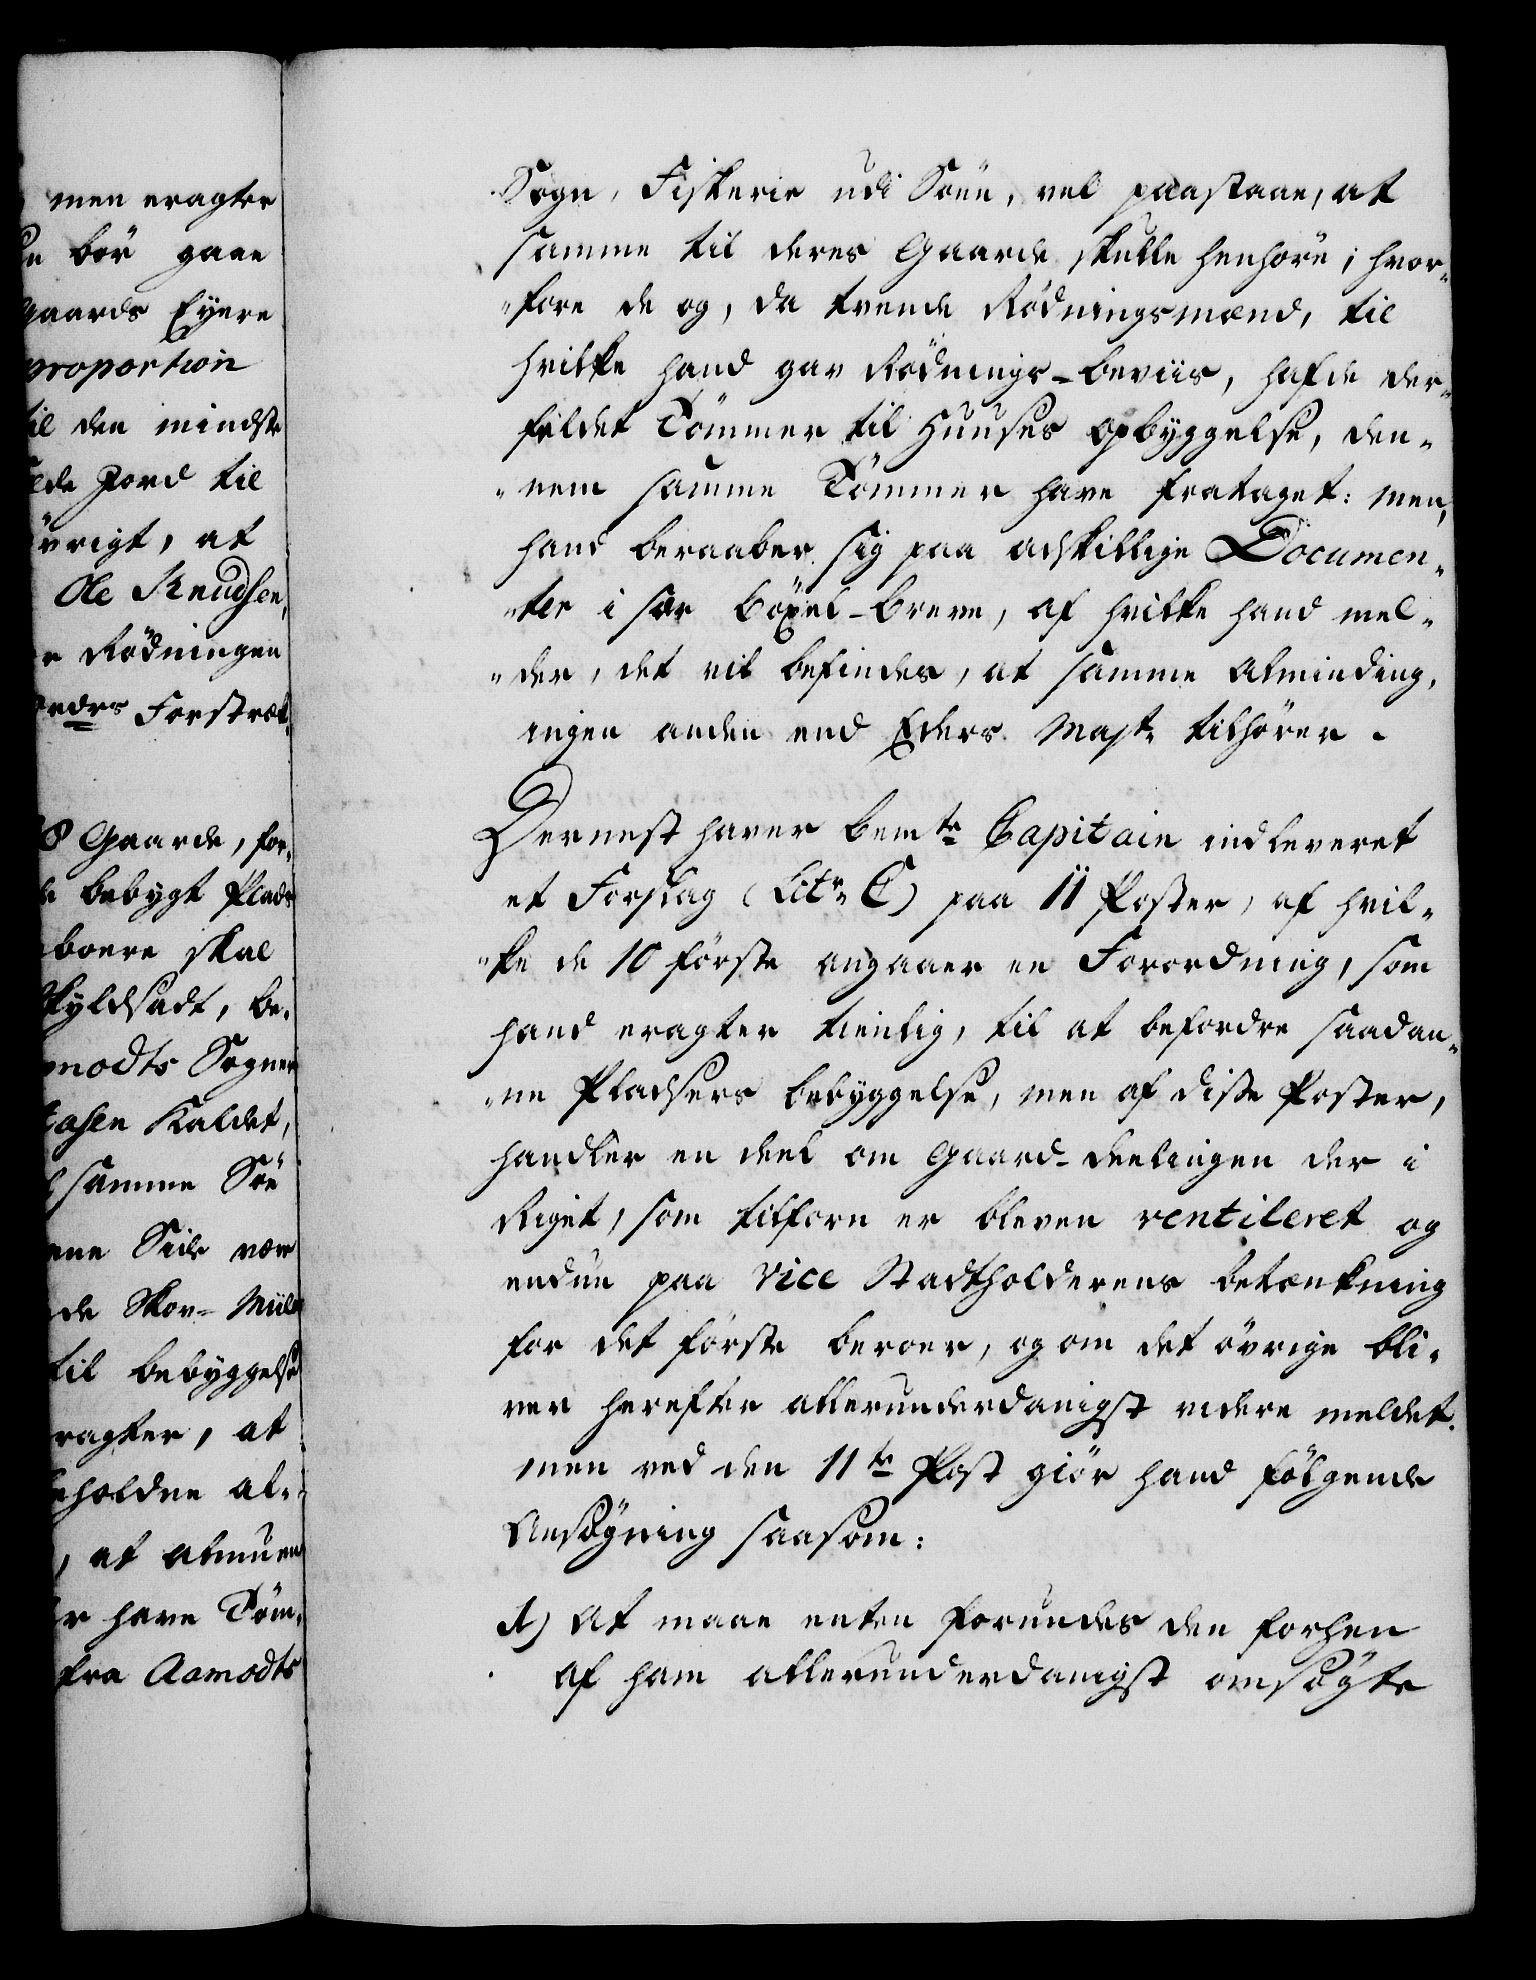 men eragter
bör gaae
gaards Eyere
proportion
til den mindste
Jord til
övrigt, at
Ole Knudsen,
Rödningen
Forstræk
8 Gaarde, for-
bebygt Plads
boere skal
skyldsadt, be-
modts Sogner
Kaldet,
samme Söe
ene Side nær
de Skov-Miile
til bebyggelse
eragter, at
holdne al-
, at almuen
have Töm-
fra Aamodts
Sogn, Fiskerie udi Söen, vel paastaae, at
samme til deres Gaarde skulle henhöre; hvor-
-fore de og, da tvende Rödningsmænd, til
hvilke hand gav Rödnings-beviis, hafde der-
fældet Tömmer til Huuses opbyggelse, den-
-nem samme Tömmer have frataget: men,
hand beraaber sig paa adskillige Documen-
-ter i sær böxel-breve, af hvilke hand mel-
-der, det vil befindes, at samme Alminding,
ingen anden end Eders Majt. tilhörer.
Dernest haver bemte Capitain indleveret
et Forslag (Litr. C) paa 11 Poster, af hvil-
-ke de 10 förste angaaer en Forordning, som
hand eragter tienlig, til at befordre saadan-
-ne Pladsers bebyggelse, men af disse Poster,
handler en deel om Gaard-deelingen der i
Riget, som tilforn er bleven ventileret og
endnu paa Vice Stadtholderens betænkning
for det förste beroer, og om det övrige bli-
ver herefter allerunderdanigst videre meldet.
men ved den 11te Post giör hand fölgende
Ansögning saasom:
1) At maae enten forundes den forhen
af ham allerunderdanigst ansögte